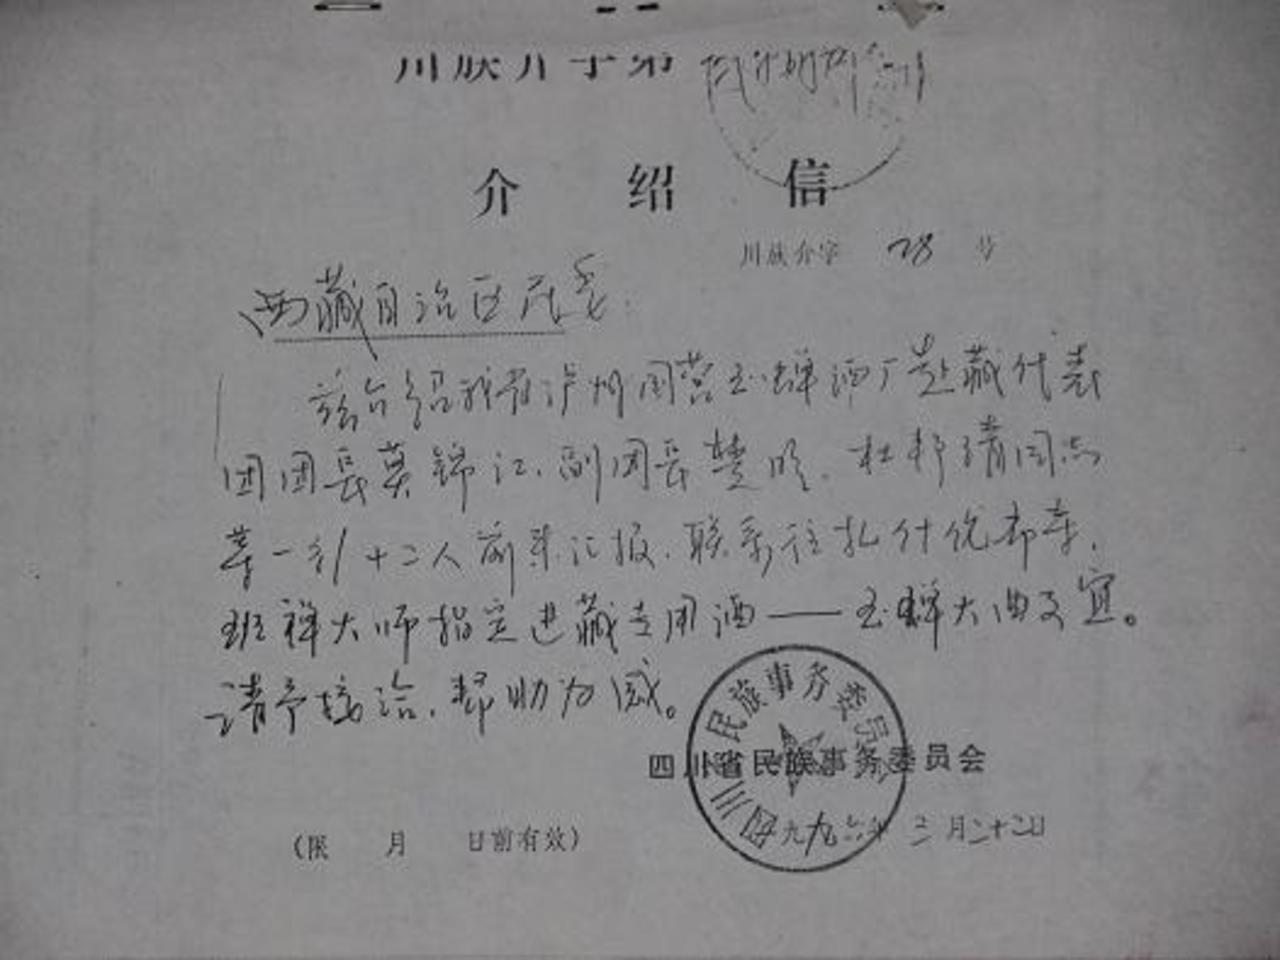 川族介字第
介绍信
川族介字 28 号
西藏自治区民委:
兹介绍我省泸州国营玉蝉酒厂赴藏代表
团团长莫锦江、副团长楚明、杜 清同志
等一行十二人前来汇报、联系往扎什伦布寺、
班禅大师指定进藏专用酒——玉蝉大曲事宜。
请予接洽、帮助为感。
四川省民族事务委员会
四川省民族事务委员会
一九九六年三月二十二日
(限 月 日前有效)